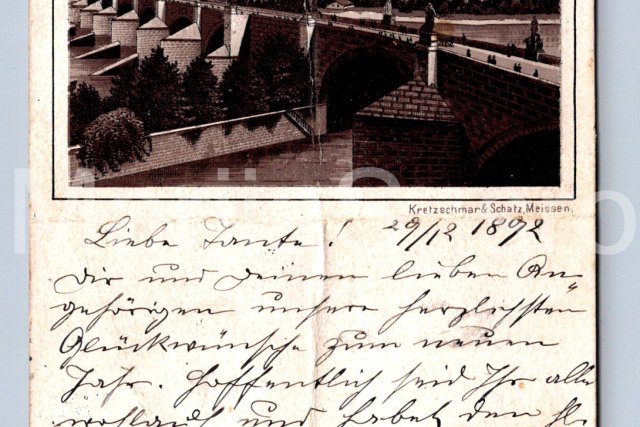 Kretzschmar & Schatz, Meissen.
Liebe Tante! 29/12 1892
Dir und Deinen lieben An-
gehörigen unsere herzlichsten
Glückwünsche zum neuen
Jahr. Hoffentlich seid Ihr alle
wohlauf und habet den hl.